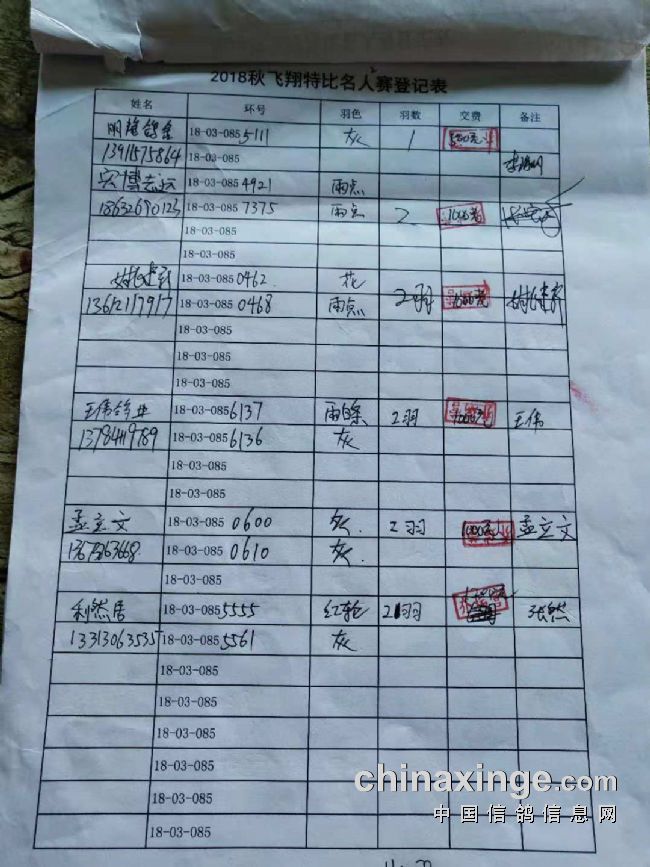 2018秋飞翔特比名人赛登记表
姓名 环号 羽色 羽数 交费 备注
明雄鸽舍 18-03-085 5111 灰 1
13911575864 18-03-085
宏博志远 18-03-085 4921 雨点
18632690123 18-03-085 7375 雨点 2 1000元
18-03-085
18-03-085
18-03-085 0462 花
13612117917 18-03-085 0468 雨点 2羽 1000元
18-03-085
18-03-085
18-03-085
王伟鸽业 18-03-085 6137 雨白条 2羽 1000元 王伟
13784119789 18-03-085 6136 灰
18-03-085
18-03-085
孟立文 18-03-085 0600 灰 2羽 1000元 孟立文
18-03-085 0610 灰
18-03-085
利然居 18-03-085 5555 红轮 2羽 张然
13313063535 18-03-085 5561 灰
18-03-085
18-03-085
18-03-085
18-03-085
18-03-085
18-03-085
chinaxinge.com
中国信鸽信息网